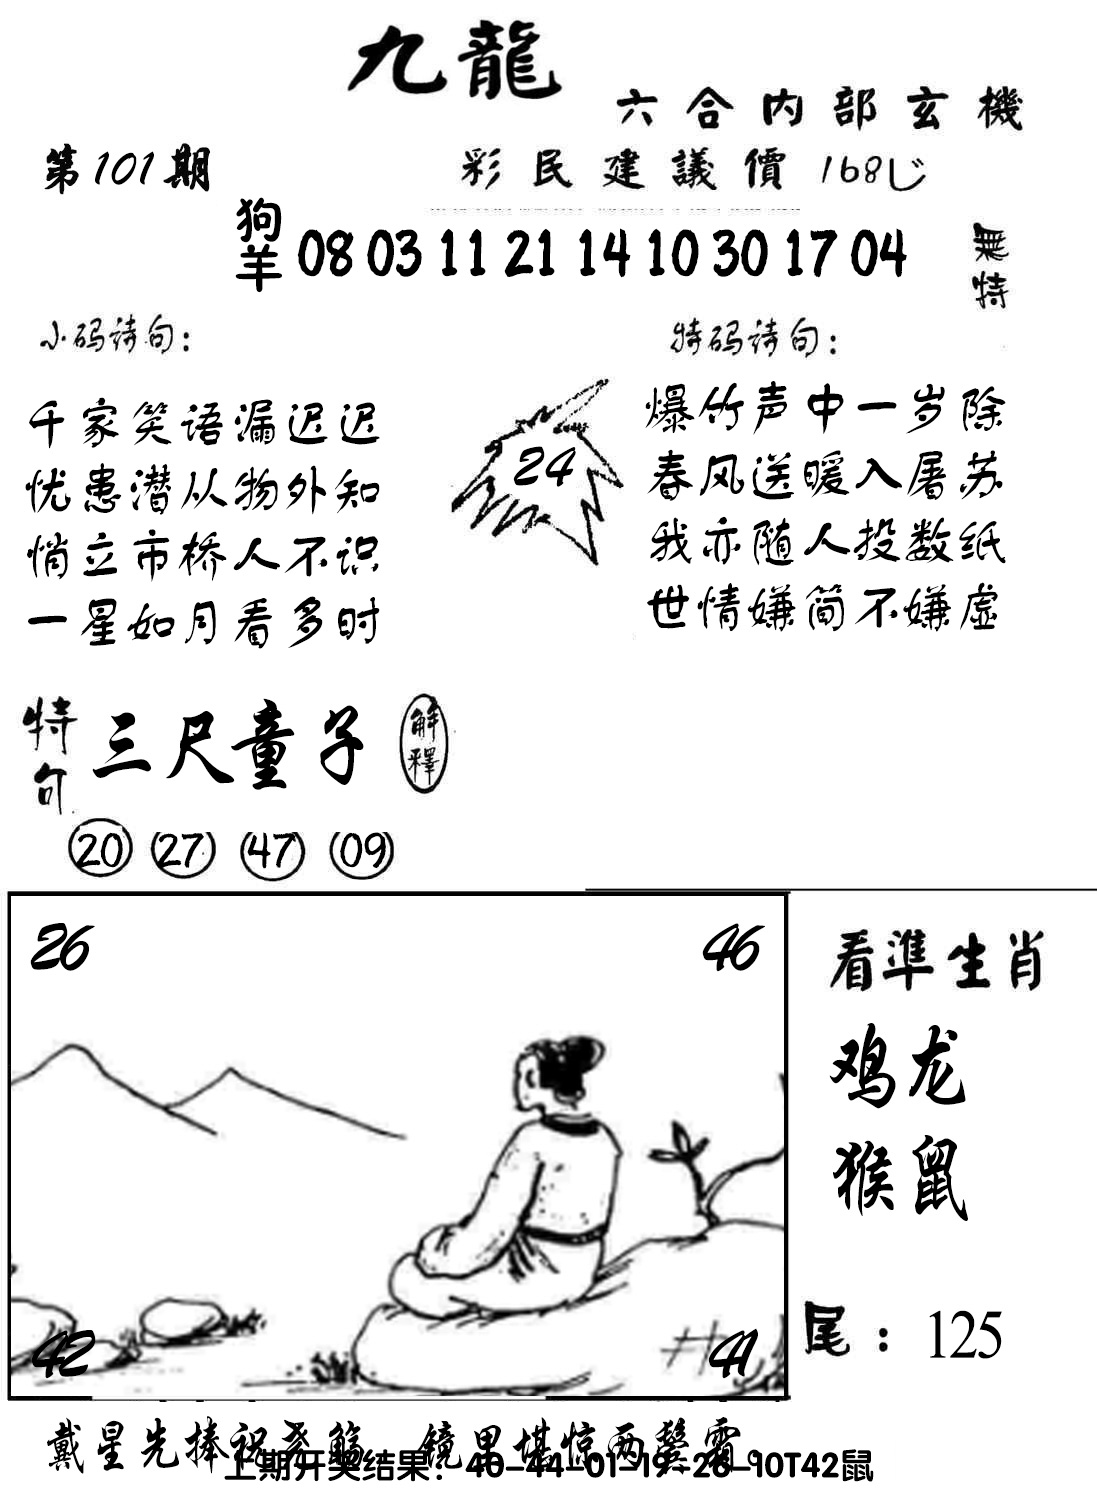 九龍
六合内部玄機
第101期
彩民建議價 168
狗羊 08 03 11 21 14 10 30 17 04
無特
小码诗句：
千家笑语漏迟迟
忧患潜从物外知
悄立市桥人不识
一星如月看多时
24
特码诗句：
爆竹声中一岁除
春风送暖入屠苏
我亦随人投数纸
世情嫌简不嫌虚
特句 三尺童子 解釋
20 27 47 09
26 46
42 41
看準生肖
鸡龙
猴鼠
尾：125
戴星先捧祝尧觞 镜里堪惊两鬓霜。
上期开奖结果：40-44-01-19-26-10T42鼠